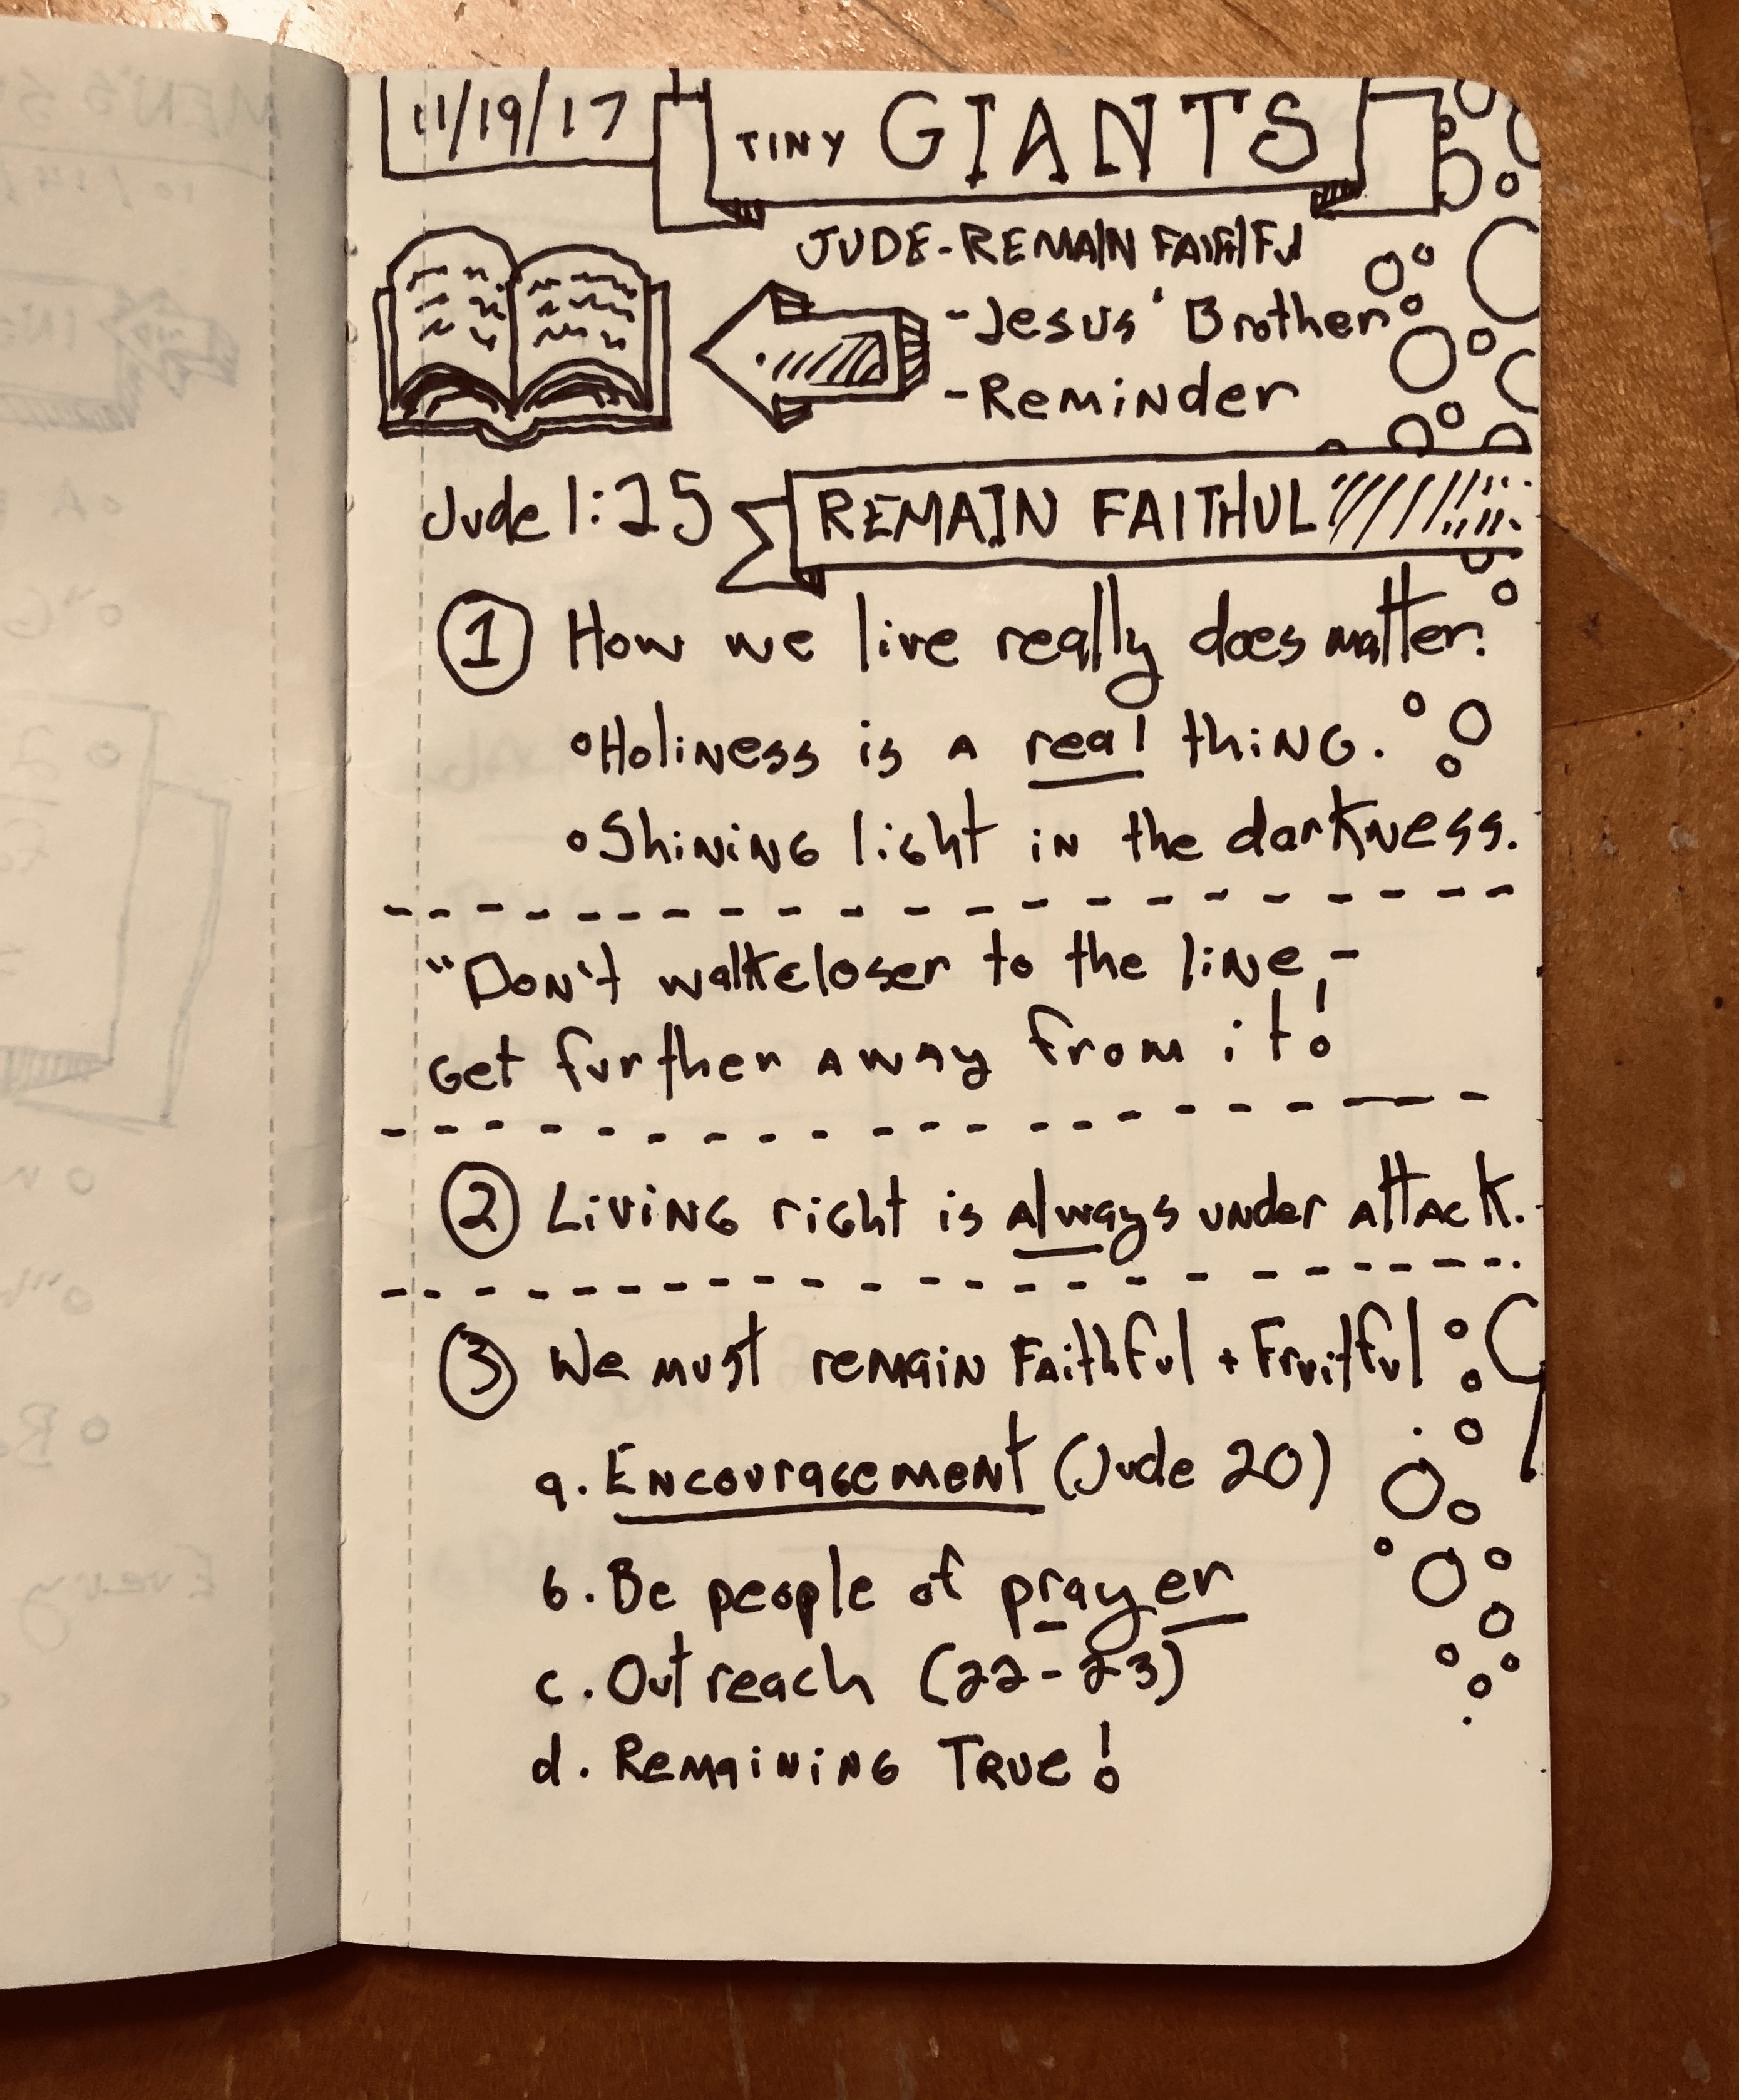 11/19/17
TINY GIANTS
JUDE-REMAIN FAITHFUL
-Jesus' Brother
-Reminder
Jude 1:25
REMAIN FAITHUL
1 How we live really does matter.
Holiness is a real thing.
Shining light in the darkness.
"Don't walk closer to the line,-
Get further away from it!
2 Living right is always under attack.
3 We must remain Faithful + Fruitful
a. Encouragement (Jude 20)
b. Be people of prayer
c. Outreach (22-23)
d. Remaining True!